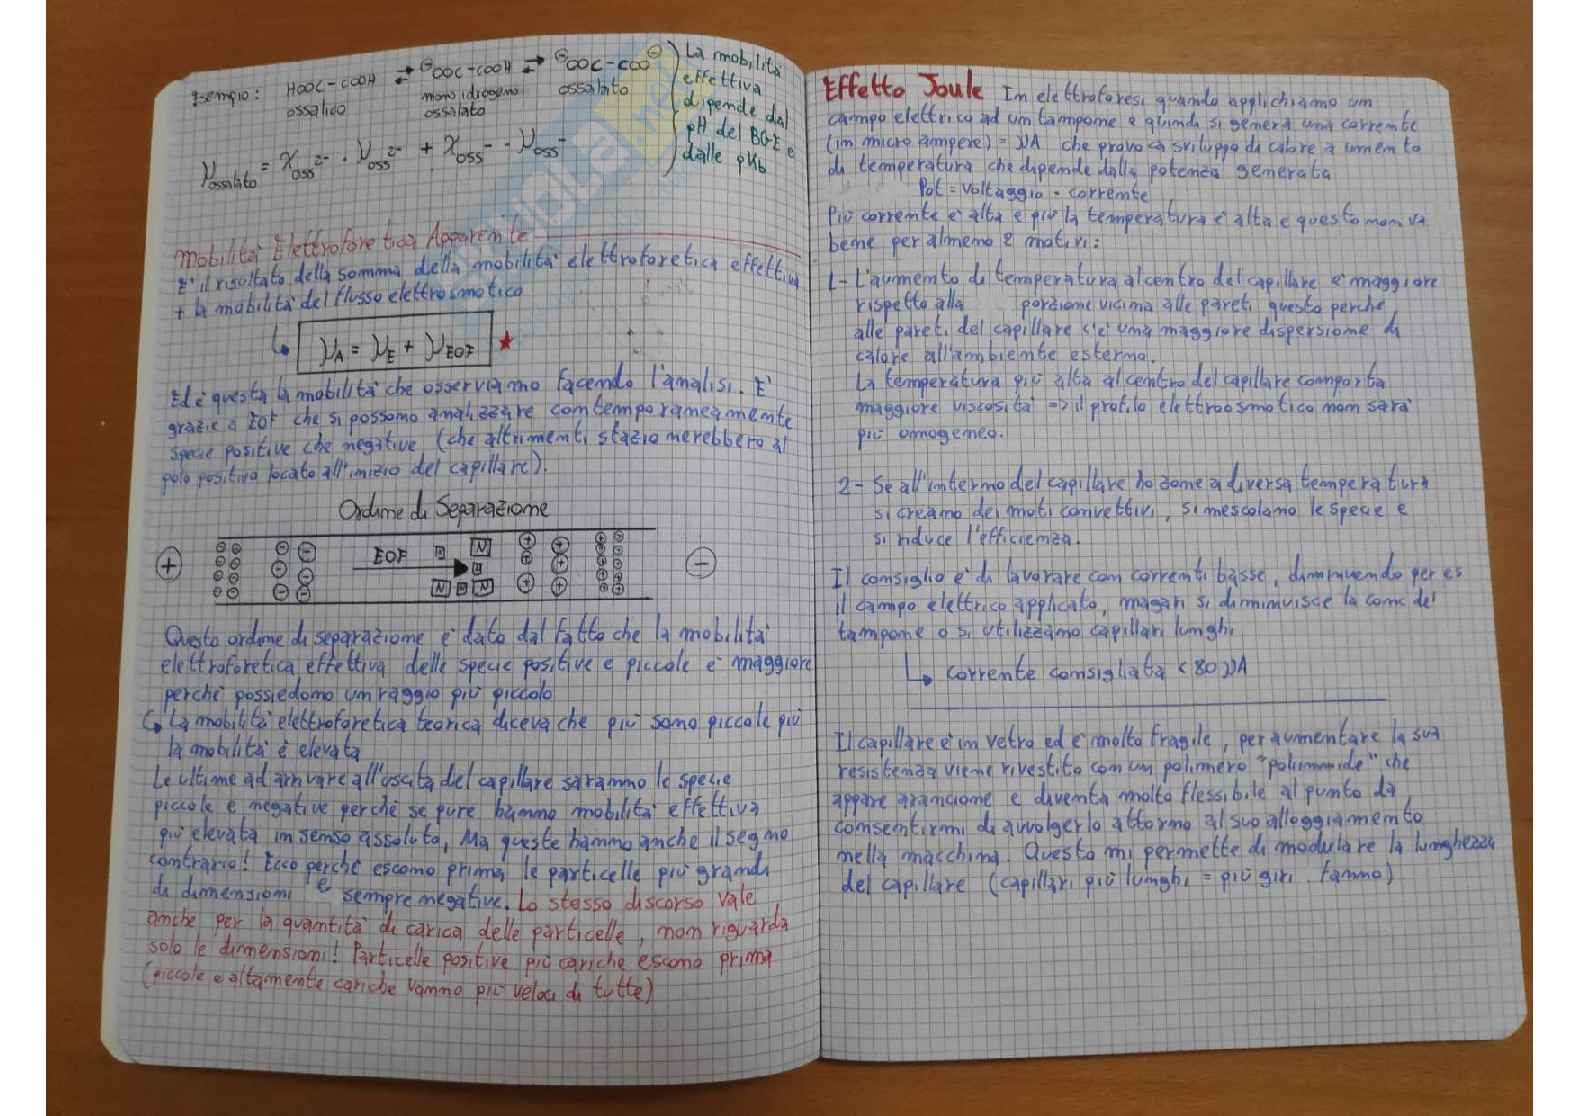 Esempio: HOOC-COOH ⇄ ⊖OOC-COOH ⇄ ⊖OOC-COO⊖
ossalico monoidrogeno ossalato ossalato
μossalato = χoss²⁻ · μoss²⁻ + χoss⁻ · μoss⁻
La mobilità
effettiva
dipende dal
pH del BGE e
dalle pKb
Mobilità Elettroforetica Apparente
È il risultato della somma della mobilità elettroforetica effettiva
+ la mobilità del flusso elettrosmotico
↳ μA = μE + μEOF ★
Ed è questa la mobilità che osserviamo facendo l'analisi. È
grazie a EOF che si possono analizzare contemporaneamente
specie positive che negative (che altrimenti stazionerebbero al
polo positivo locato all'inizio del capillare).
Ordine di Separazione
+ EOF N N N −
Questo ordine di separazione è dato dal fatto che la mobilità
elettroforetica effettiva delle specie positive e piccole è maggiore
perché possiedono un raggio più piccolo
↳ La mobilità elettroforetica teorica diceva che più sono piccole più
la mobilità è elevata
Le ultime ad arrivare all'uscita del capillare saranno le specie
piccole e negative perché se pure hanno mobilità effettiva
più elevata in senso assoluto, Ma queste hanno anche il segno
contrario! Ecco perché escono prima, le particelle più grandi
di dimensioni e sempre negative. Lo stesso discorso vale
anche per la quantità di carica delle particelle, non riguarda
solo le dimensioni! Particelle positive più cariche escono prima
(piccole e altamente cariche vanno più veloci di tutte)
Effetto Joule In elettroforesi quando applichiamo un
campo elettrico ad un tampone e quindi si genera una corrente
(in micro ampere) = μA che provoca sviluppo di calore aumento
di temperatura che dipende dalla potenza generata
Pot = voltaggio · corrente
Più corrente è alta e più la temperatura è alta e questo non va
bene per almeno 2 motivi:
1- L'aumento di temperatura al centro del capillare è maggiore
rispetto alla porzione vicina alle pareti questo perché
alle pareti del capillare c'è una maggiore dispersione di
calore all'ambiente esterno.
La temperatura più alta al centro del capillare comporta
maggiore viscosità => il profilo elettroosmotico non sarà
più omogeneo.
2- Se all'interno del capillare ho zone a diversa temperatura
si creano dei moti convettivi, si mescolano le specie e
si riduce l'efficienza.
Il consiglio è di lavorare con correnti basse, diminuendo per es
il campo elettrico applicato, magari si diminuisce la conc del
tampone o si utilizzano capillari lunghi
↳ corrente consigliata < 80 μA
Il capillare è in vetro ed è molto fragile, per aumentare la sua
resistenza viene rivestito con un polimero "poliimmide" che
appare arancione e diventa molto flessibile al punto da
consentirmi di avvolgerlo attorno al suo alloggiamento
nella macchina. Questo mi permette di modulare la lunghezza
del capillare (capillari più lunghi = più giri fanno)